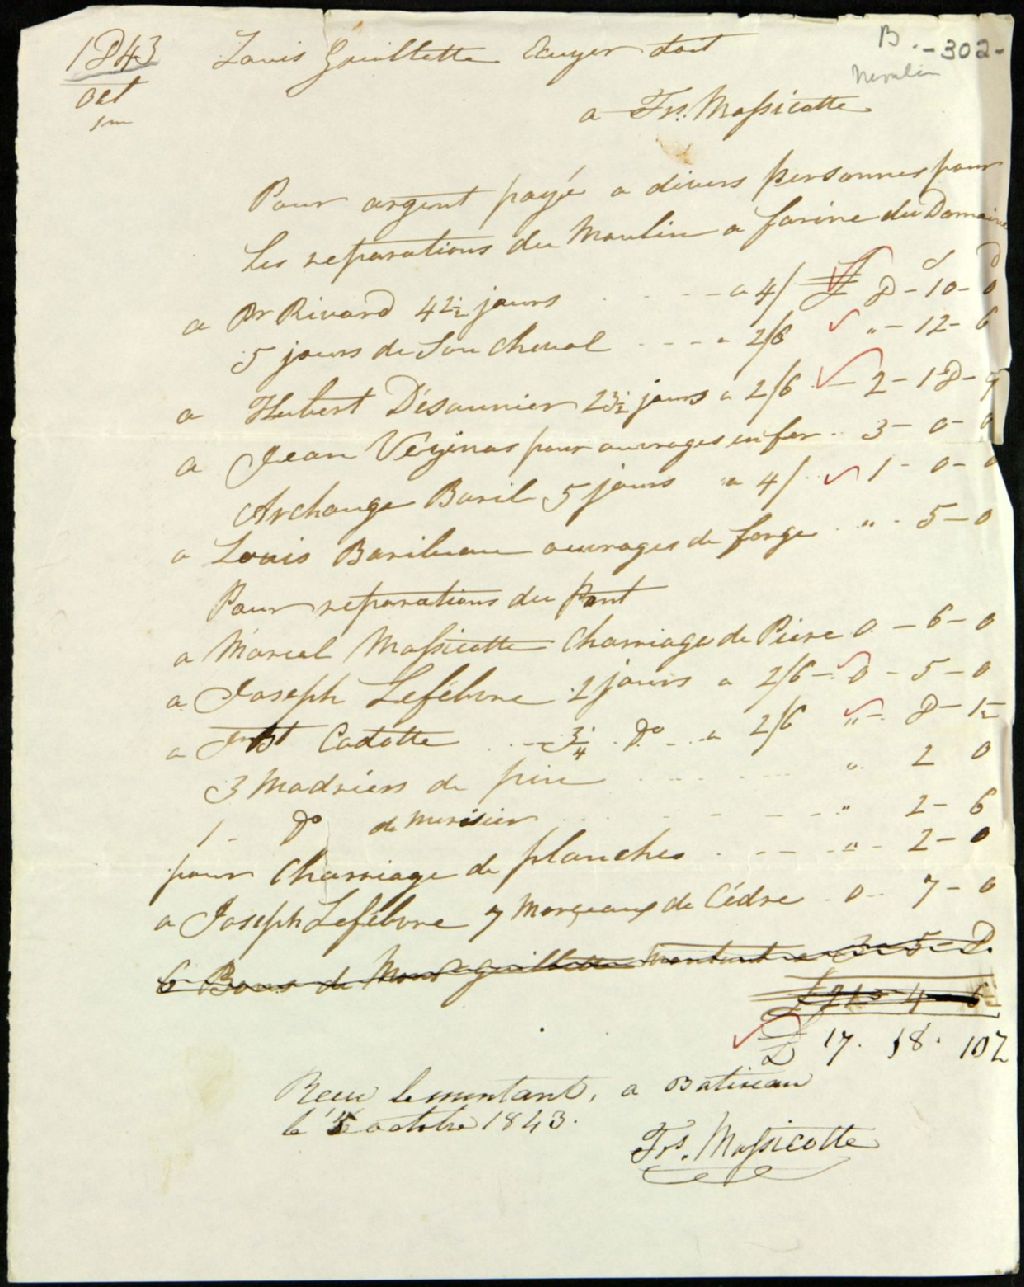 1843 Louis Guillette Ecuyer doit
B. -302-
Oct
a Frs. Massicotte
Pour argent payé a divers personnes pour
les reparations du Moulin a farine du Domaine
£ s d
a Br Rivard 42½ jours - a 4/ 8 - 10 - 0
5 jours de son cheval - - - a 2/6 " - 12 - 6
a Hubert Désaunier 23½ jours a 2/6 - 2 - 18 - 9
a Jean Veżinas pour ouvrages en fer .. 3 - 0 - 0
Archange Baril 5 jours a 4/ 1 - 0 - 0
a Louis Baribeau ouvrages de forge " - 5 - 0
Pour reparations du Pont
a Marcel Massicotte Charriage de Piere 0 - 6 - 0
a Joseph Lefébvre 2 jours a 2/6 - 0 - 5 - 0
a Cadotte ¾ do a 2/6 "
3 Madriers de pin " 2 0
1 - do de merisier " 2 - 6
pour Charriage de planches " 2 - 0
a Joseph Lefébvre 7 Morçeaux de Cédre 0 7 - 0
6 Bons de Monsr Guillette montant a 3 - 5 - 8
£ 21 - 4 - 6
£ 17. 18. 10½
Recu le montant, a Batiscan
le octobre 1843.
Frs. Massicotte